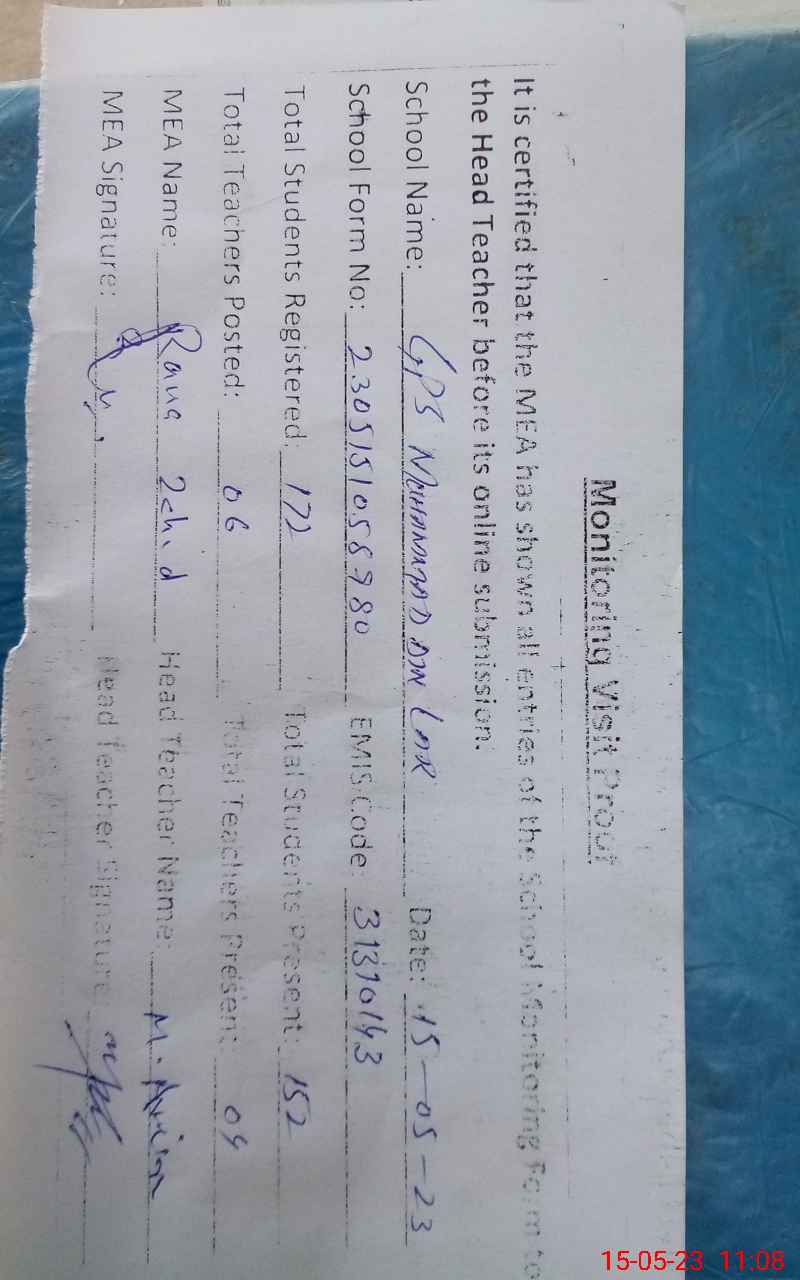 Monitoring Visit Proof
It is certified that the MEA has shown all entries of the School Monitoring Form to
the Head Teacher before its online submission.
School Name: GPS MUHAMMAD DIN LAR Date: 15-05-23
School Form No: 2305151058980 EMIS Code: 31310143
Total Students Registered: 172 Total Students Present: 152
Total Teachers Posted: 06 Total Teachers Present: 04
MEA Name: Rana Head Teacher Name: M.
MEA Signature: Head Teacher Signature:
15-05-23 11:08